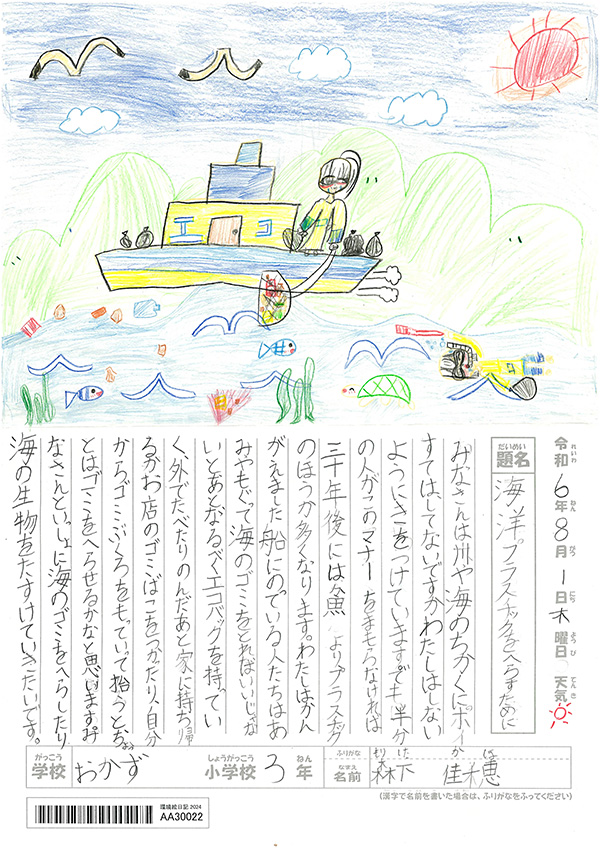 エコ
令和6年8月1日木曜日 天気
れいわ ねん がつ にち ようび てんき
題名 海洋プラスチックをへらすために
だいめい
みなさんは川や海のちかくにポイ
すてはしてないですかわたしはしない
ようにきをつけています。でも半分
の人がこのマナーをまもらなければ
三十年後には魚よりプラスチック
のほうが多くなります。わたしはかん
がえました船にのっている人たちはあ
みやもぐって海のゴミをとればいいじゃな
いとあとなるべくエコバックを持ってい
く、外でたべたりのんだあと家に持ち帰
るかお店のゴミばこをつかったり、自分
からゴミぶくろをもっていって拾うとな
とはゴミをへらせるかなと思います。み
なさんといっしょに海のゴミをへらしたり
海の生物をたすけていきたいです。
がっこう しょうがっこう ねん ふりがな もりした かほ
学校 おかず 小学校 3年 名前 森下 佳穂
なまえ
(漢字で名前を書いた場合は、ふりがなをふってください)
環境絵日記2024
AA30022